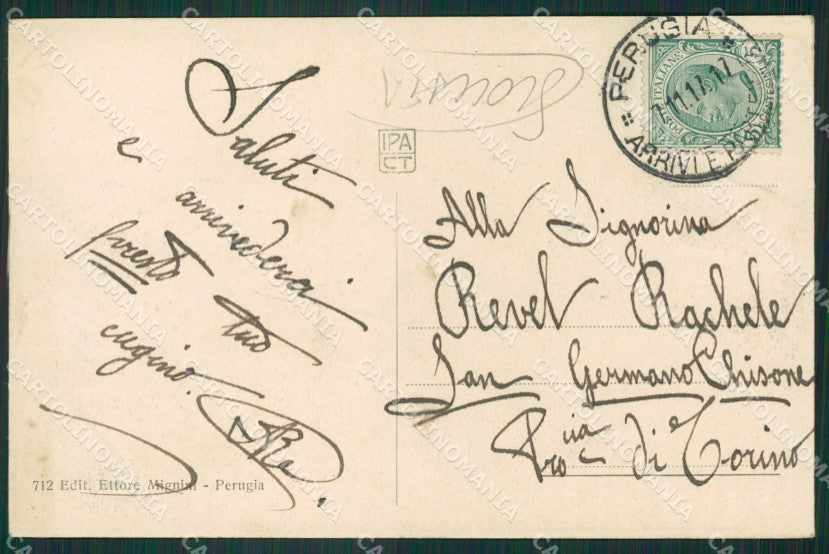 Saluti
e arrivederci
presto tuo
cugino.
712 Edit. Ettore Mignini - Perugia
IPA
CT
PERUGIA
11.1.17.17
ARRIVI E P
POSTE ITALIANE
Alla Signorina
Revel Rachele
San Germano Chisone
Prov.cia di Torino
CARTOLINOMANIA